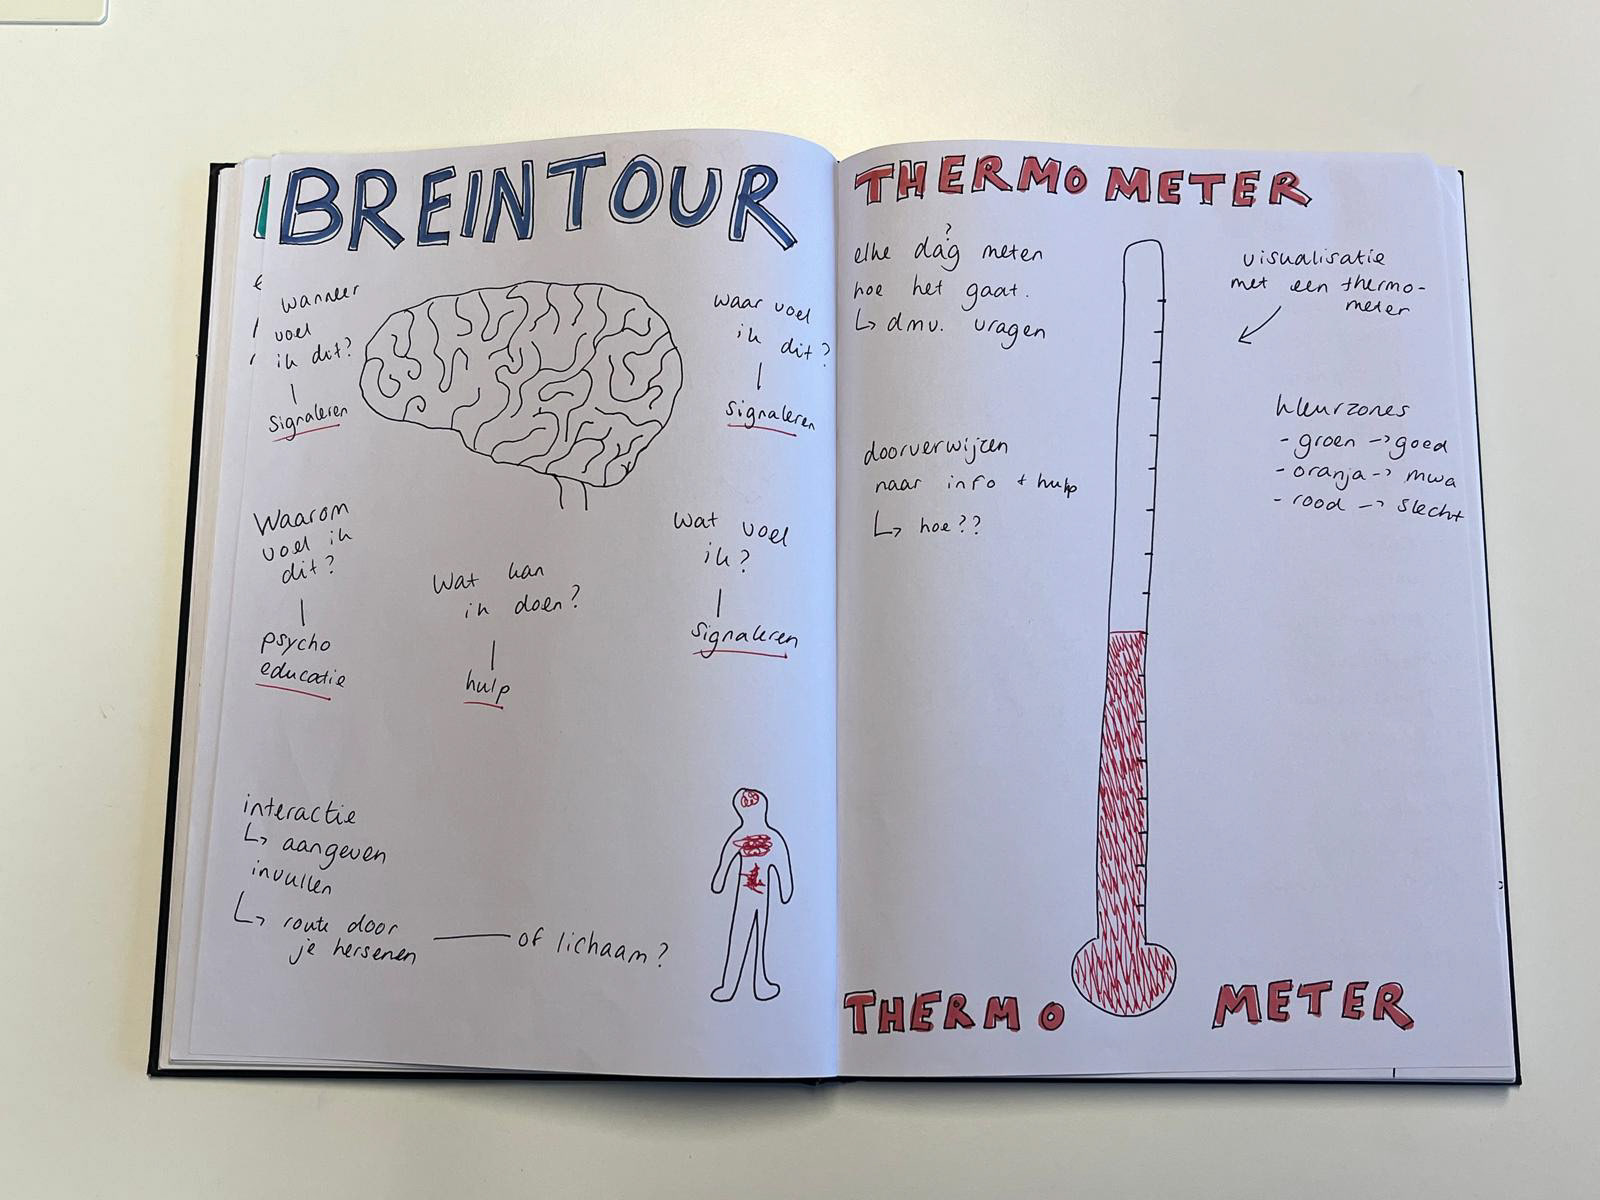 BREINTOUR
wanneer
voel
ik dit?
signaleren
waar voel
ik dit?
signaleren
Waarom
voel ik
dit?
psycho
educatie
Wat kan
ik doen?
hulp
Wat voel
ik?
signaleren
interactie
↳ aangeven
invullen
↳ route door
je hersenen
of lichaam?
THERMOMETER
?
elke dag meten
hoe het gaat.
↳ dmv. vragen
doorverwijzen
naar info + hulp
↳ hoe??
visualisatie
met een thermo-
meter
kleurzones
- groen → goed
- oranja → mwa
- rood → slecht
THERMO METER